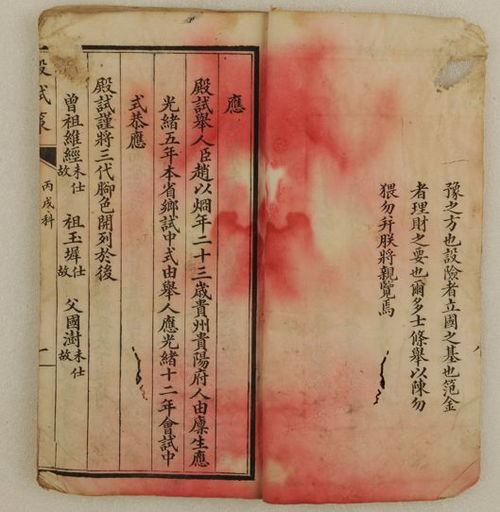 豫之方也設險者立國之基也範金
者理財之要也爾多士條舉以陳勿
猥勿并朕將親覽焉
應
殿試舉人臣趙以烱年二十三歲貴州貴陽府人由廩生應
光緒五年本省鄉試中式由舉人應光緒十二年會試中
式恭應
殿試謹將三代腳色開列於後
曾祖維經未仕故 祖玉墀仕故 父國澍未仕故
殿試策 丙戌科 一